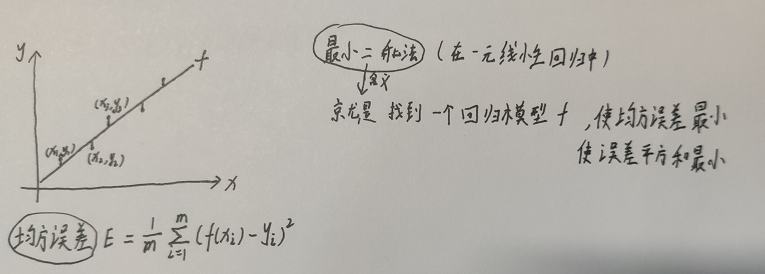 y
f
(x₁,y₁)
(x₂,y₂)
(x₃,y₃)
x
最小二乘法 (在一元线性回归中)
含义
就是 找到一个回归模型 f ,使均方误差最小
使误差平方和最小
均方误差 E = \frac{1}{m} \sum_{i=1}^{m} (f(x_i) - y_i)^2